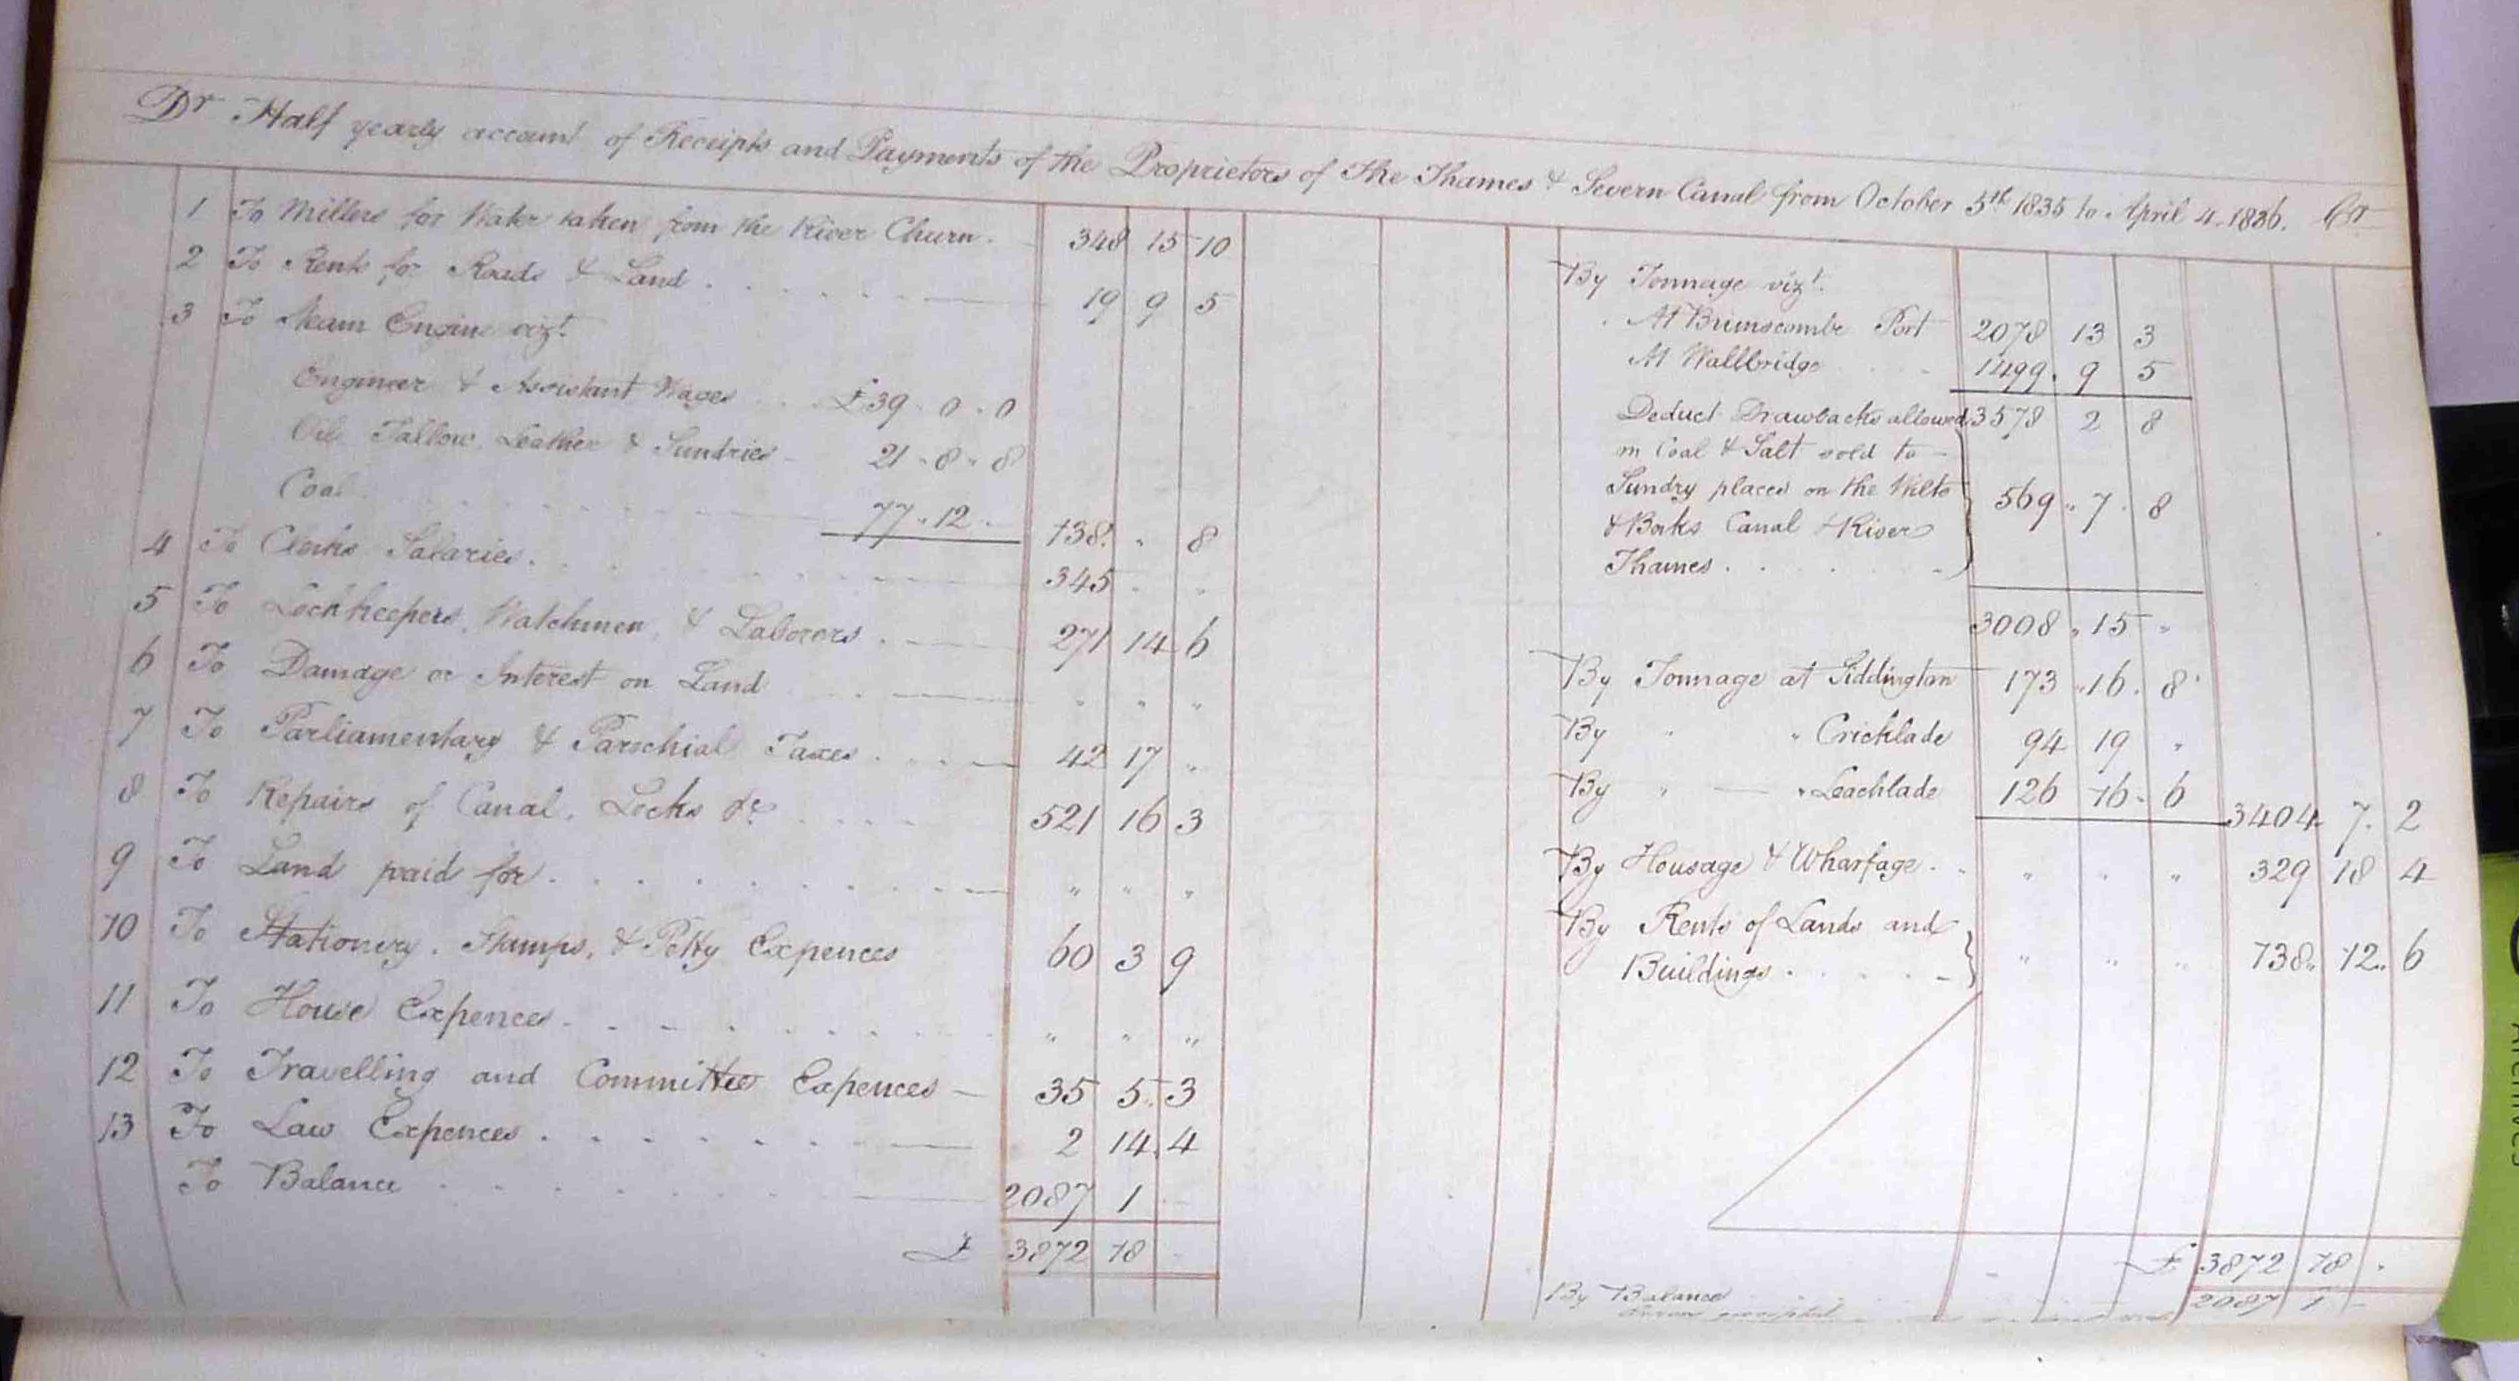 Dr Half yearly account of Receipts and Payments of the Proprietors of the Thames & Severn Canal from October 5th 1835 to April 4. 1836. Cr
1 To Millers for Water taken from the River Churn. 348 15 10
2 To Rents for Roads & Land . . . . . . 19 9 5
3 To Steam Engine vizt.
Engineer & Assistant Wages . . . £39 . 0 . 0
Oil Tallow, Leather & Sundries - 21 . 8 . 8
Coal . . . . . . 77 . 12 . 138 . " 8
4 To Clerks Salaries . . . . . . 345 " "
5 To Lockkeepers, Watchmen, & Laborers . 271 14 6
6 To Damage or Interest on Land . . " " "
7 To Parliamentary & Parochial Taxes . . . 42 17 "
8 To Repairs of Canal, Locks &c . . . . 521 16 3
9 To Land paid for . . . . . . . . " " "
10 To Stationery, Stamps, & Petty Expences 60 3 9
11 To House Expences . . . . . . . " " "
12 To Travelling and Committee Expences - 35 5 3
13 To Law Expences . . . . . . . 2 14 4
To Balance . . . . . . . 2087 1 -
£ 3872 18 -
By Tonnage vizt.
At Brimscombe Port 2078 13 3
At Wallbridge . . . 1499 . 9 5
3578 2 8
Deduct Drawbacks allowed
on Coal & Salt sold to
Sundry places on the Wilts 569 " 7 . 8
& Berks Canal & River
Thames . . . . . .
3008 " 15 "
By Tonnage at Siddington 173 " 16 . 8
By " " Cricklade 94 19 "
By " " Leachlade 126 16 . 6 3404 . 7 . 2
By Housage & Wharfage . . " " " 329 18 4
By Rents of Lands and
Buildings . . . . . " " " 138 " 12 " 6
£ 3872 18 .
By Balance . . . 2087 1 -
Errors excepted